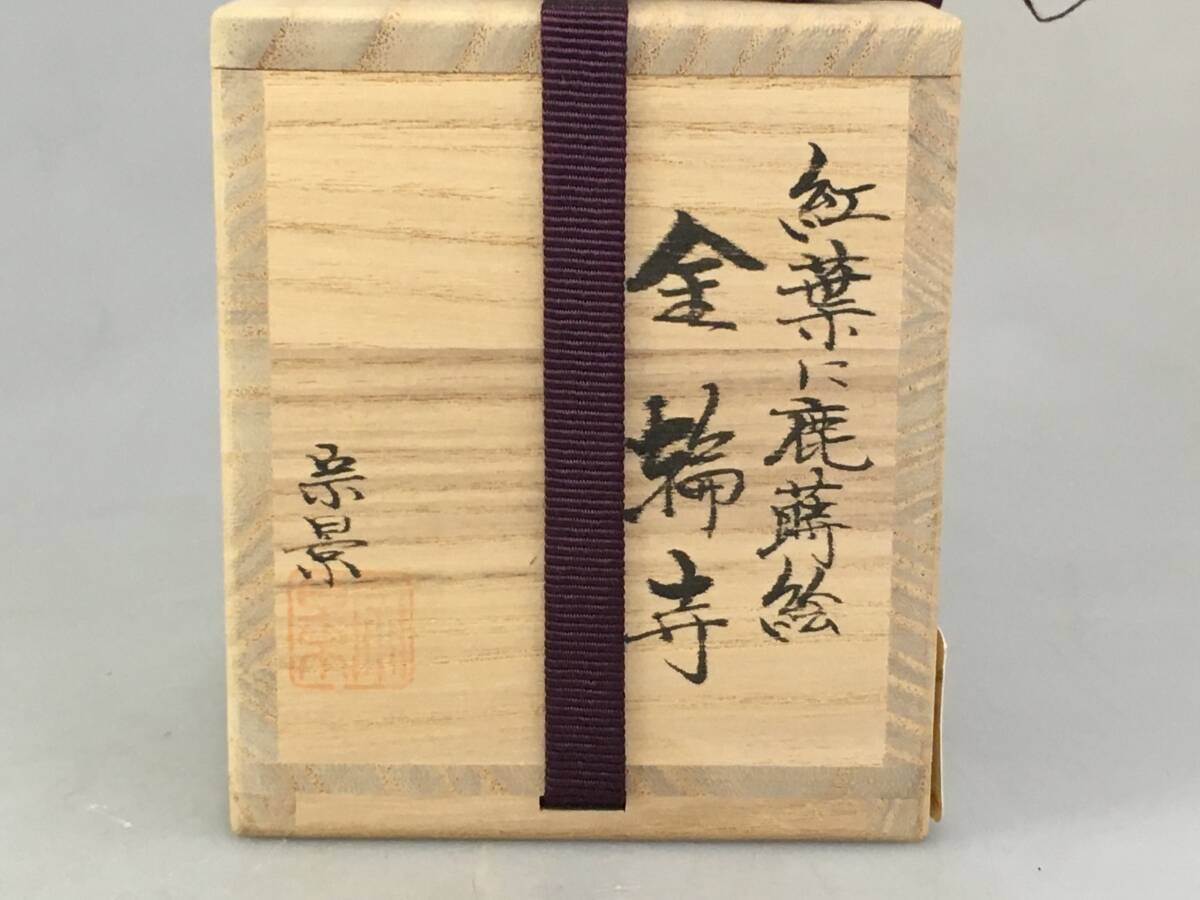 紅葉に鹿蒔絵
金輪寺